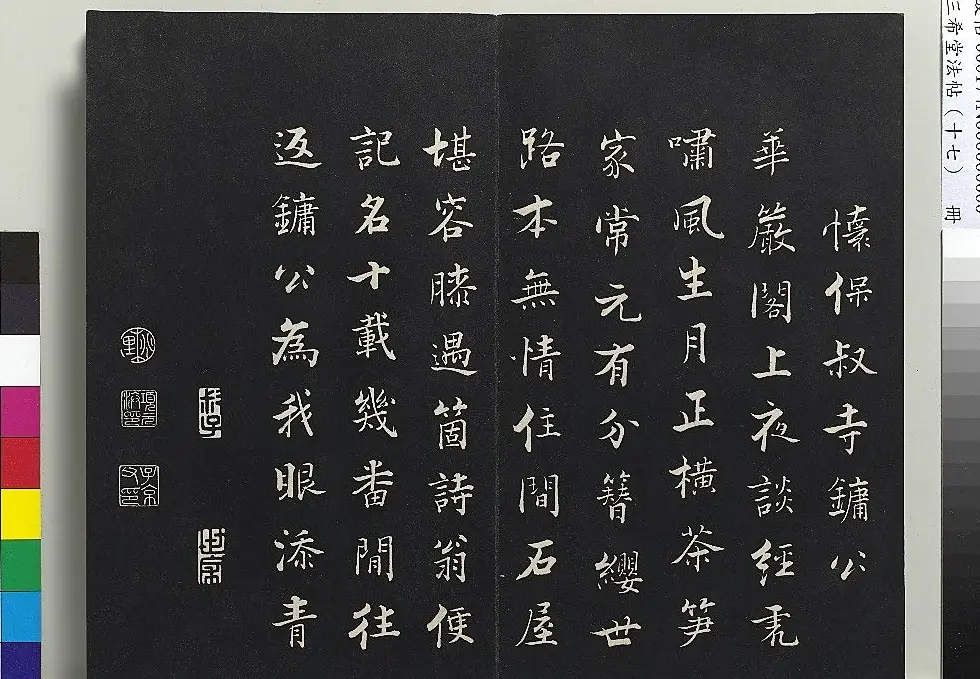 三希堂法帖（十七） 冊
懐保叔寺鏞公
華嚴閣上夜談經虎
嘯風生月正橫茶笋
家常元有分簪纓世
路本無情住間石屋
堪容膝遇箇詩翁便
記名十載幾畨閒往
返鏞公為我眼添青